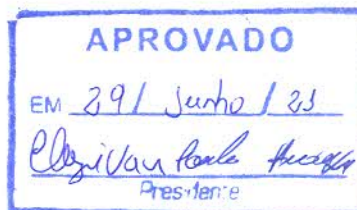 APROVADO
EM 29/ Junho / 23
Presidente